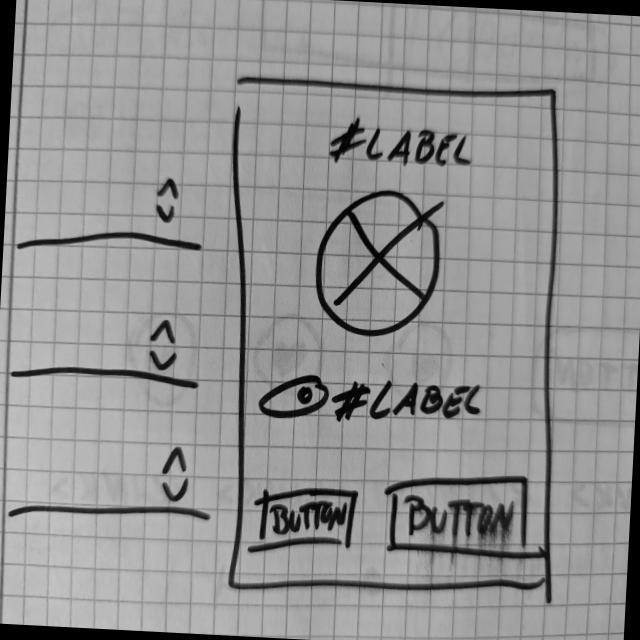 #LABEL
#LABEL
BUTTON BUTTON